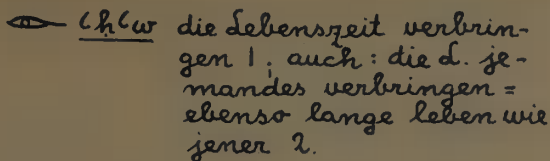 𓁹— ꜥḥꜥw die Lebenszeit verbrin-
gen 1; auch: die L. je-
mandes verbringen =
ebenso lange leben wie
jener 2.